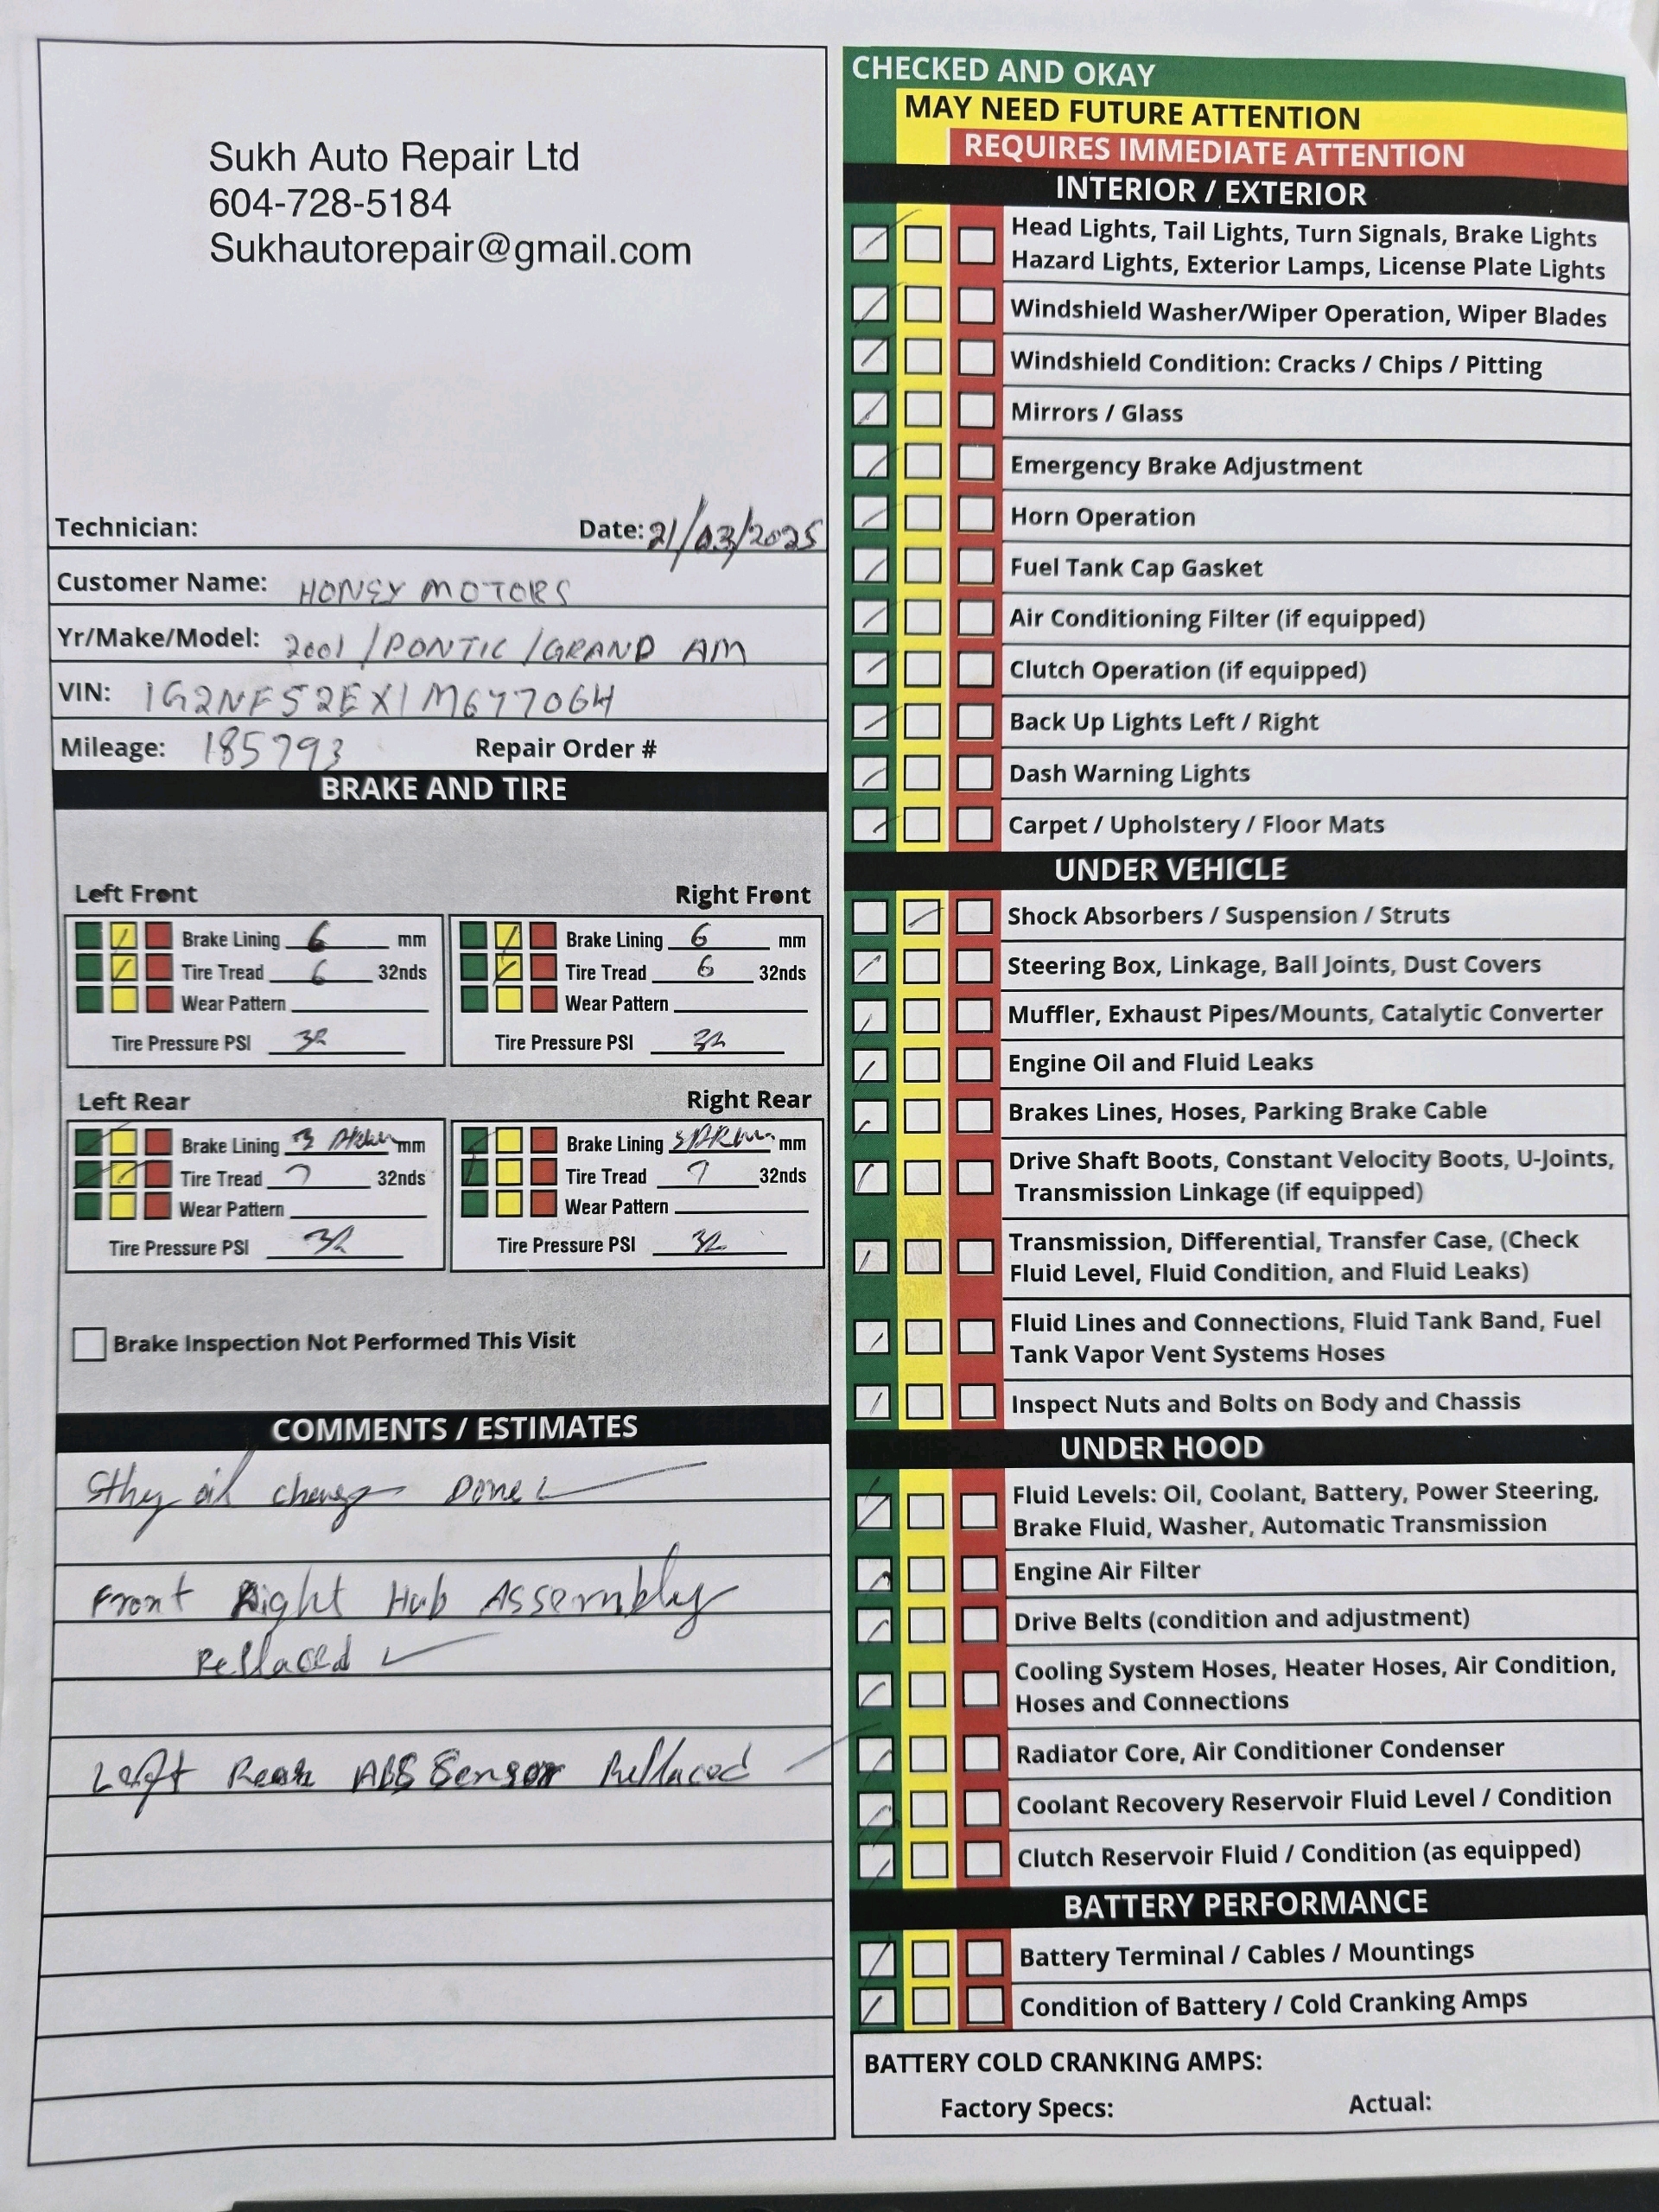 Sukh Auto Repair Ltd
604-728-5184
Sukhautorepair@gmail.com
Technician: Date: 21/03/2025
Customer Name: HONEY MOTORS
Yr/Make/Model: 2001 / PONTIC / GRAND AM
VIN: 1G2NF52EX1M677064
Mileage: 185793 Repair Order #
BRAKE AND TIRE
Left Front Right Front
Brake Lining 6 mm Brake Lining 6 mm
Tire Tread 6 32nds Tire Tread 6 32nds
Wear Pattern Wear Pattern
Tire Pressure PSI 32 Tire Pressure PSI 32
Left Rear Right Rear
Brake Lining mm Brake Lining mm
Tire Tread 7 32nds Tire Tread 7 32nds
Wear Pattern Wear Pattern
Tire Pressure PSI 32 Tire Pressure PSI 32
Brake Inspection Not Performed This Visit
COMMENTS / ESTIMATES
oil change Done
Front Right Hub Assembly
Rellaced
Left Rear ABS Sensor Rellaced
CHECKED AND OKAY
MAY NEED FUTURE ATTENTION
REQUIRES IMMEDIATE ATTENTION
INTERIOR / EXTERIOR
Head Lights, Tail Lights, Turn Signals, Brake Lights
Hazard Lights, Exterior Lamps, License Plate Lights
Windshield Washer/Wiper Operation, Wiper Blades
Windshield Condition: Cracks / Chips / Pitting
Mirrors / Glass
Emergency Brake Adjustment
Horn Operation
Fuel Tank Cap Gasket
Air Conditioning Filter (if equipped)
Clutch Operation (if equipped)
Back Up Lights Left / Right
Dash Warning Lights
Carpet / Upholstery / Floor Mats
UNDER VEHICLE
Shock Absorbers / Suspension / Struts
Steering Box, Linkage, Ball Joints, Dust Covers
Muffler, Exhaust Pipes/Mounts, Catalytic Converter
Engine Oil and Fluid Leaks
Brakes Lines, Hoses, Parking Brake Cable
Drive Shaft Boots, Constant Velocity Boots, U-Joints,
Transmission Linkage (if equipped)
Transmission, Differential, Transfer Case, (Check
Fluid Level, Fluid Condition, and Fluid Leaks)
Fluid Lines and Connections, Fluid Tank Band, Fuel
Tank Vapor Vent Systems Hoses
Inspect Nuts and Bolts on Body and Chassis
UNDER HOOD
Fluid Levels: Oil, Coolant, Battery, Power Steering,
Brake Fluid, Washer, Automatic Transmission
Engine Air Filter
Drive Belts (condition and adjustment)
Cooling System Hoses, Heater Hoses, Air Condition,
Hoses and Connections
Radiator Core, Air Conditioner Condenser
Coolant Recovery Reservoir Fluid Level / Condition
Clutch Reservoir Fluid / Condition (as equipped)
BATTERY PERFORMANCE
Battery Terminal / Cables / Mountings
Condition of Battery / Cold Cranking Amps
BATTERY COLD CRANKING AMPS:
Factory Specs: Actual: